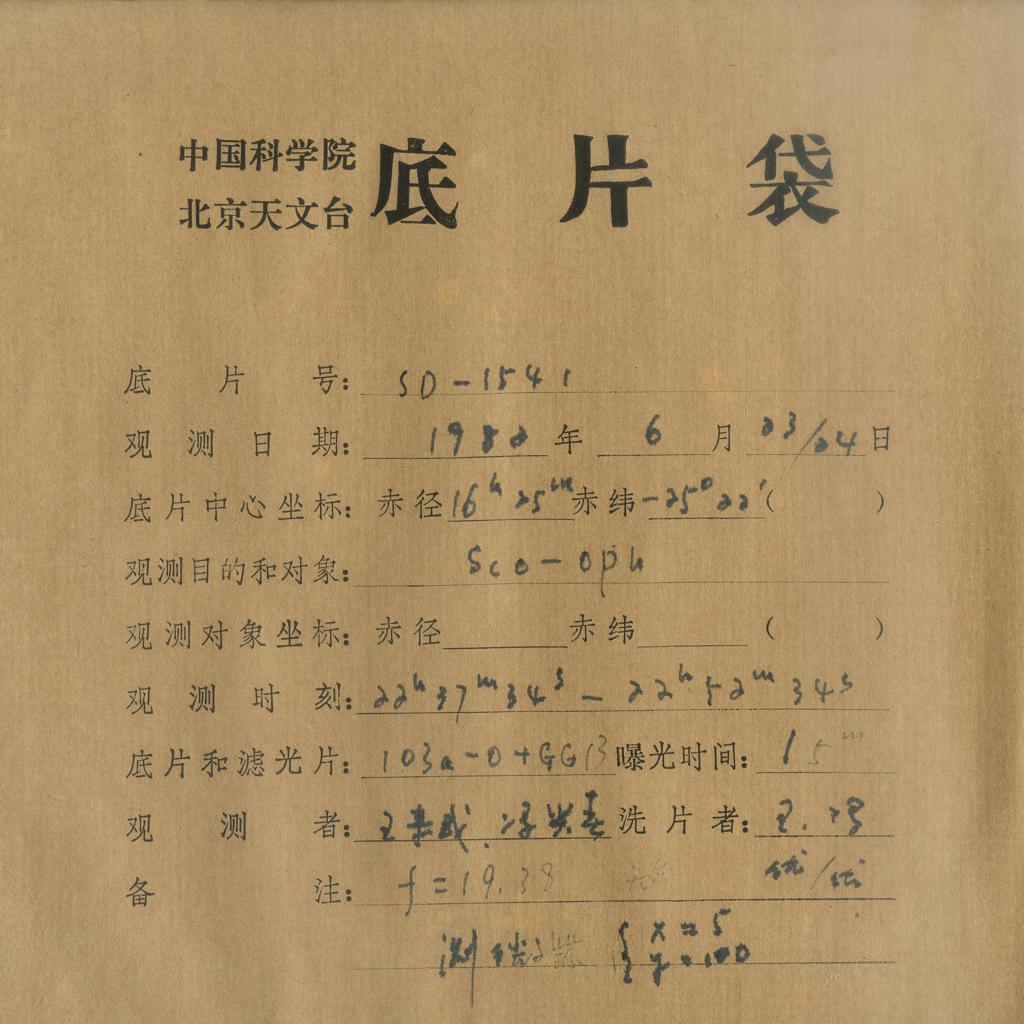 中国科学院
北京天文台
底片袋
底片号: SD-1541
观测日期: 1982年 6月 23/24日
底片中心坐标: 赤径 16h 25m 赤纬 -25° 22' ( )
观测目的和对象: Sco-Oph
观测对象坐标: 赤径 赤纬 ( )
观测时刻: 22h 37m 34s - 22h 52m 34s
底片和滤光片: 103a-O+GG13 曝光时间: 15m
观测者: 王 洗片者: 王. 冯
备注: f=19.38 优/优
测 { x=5
y=100